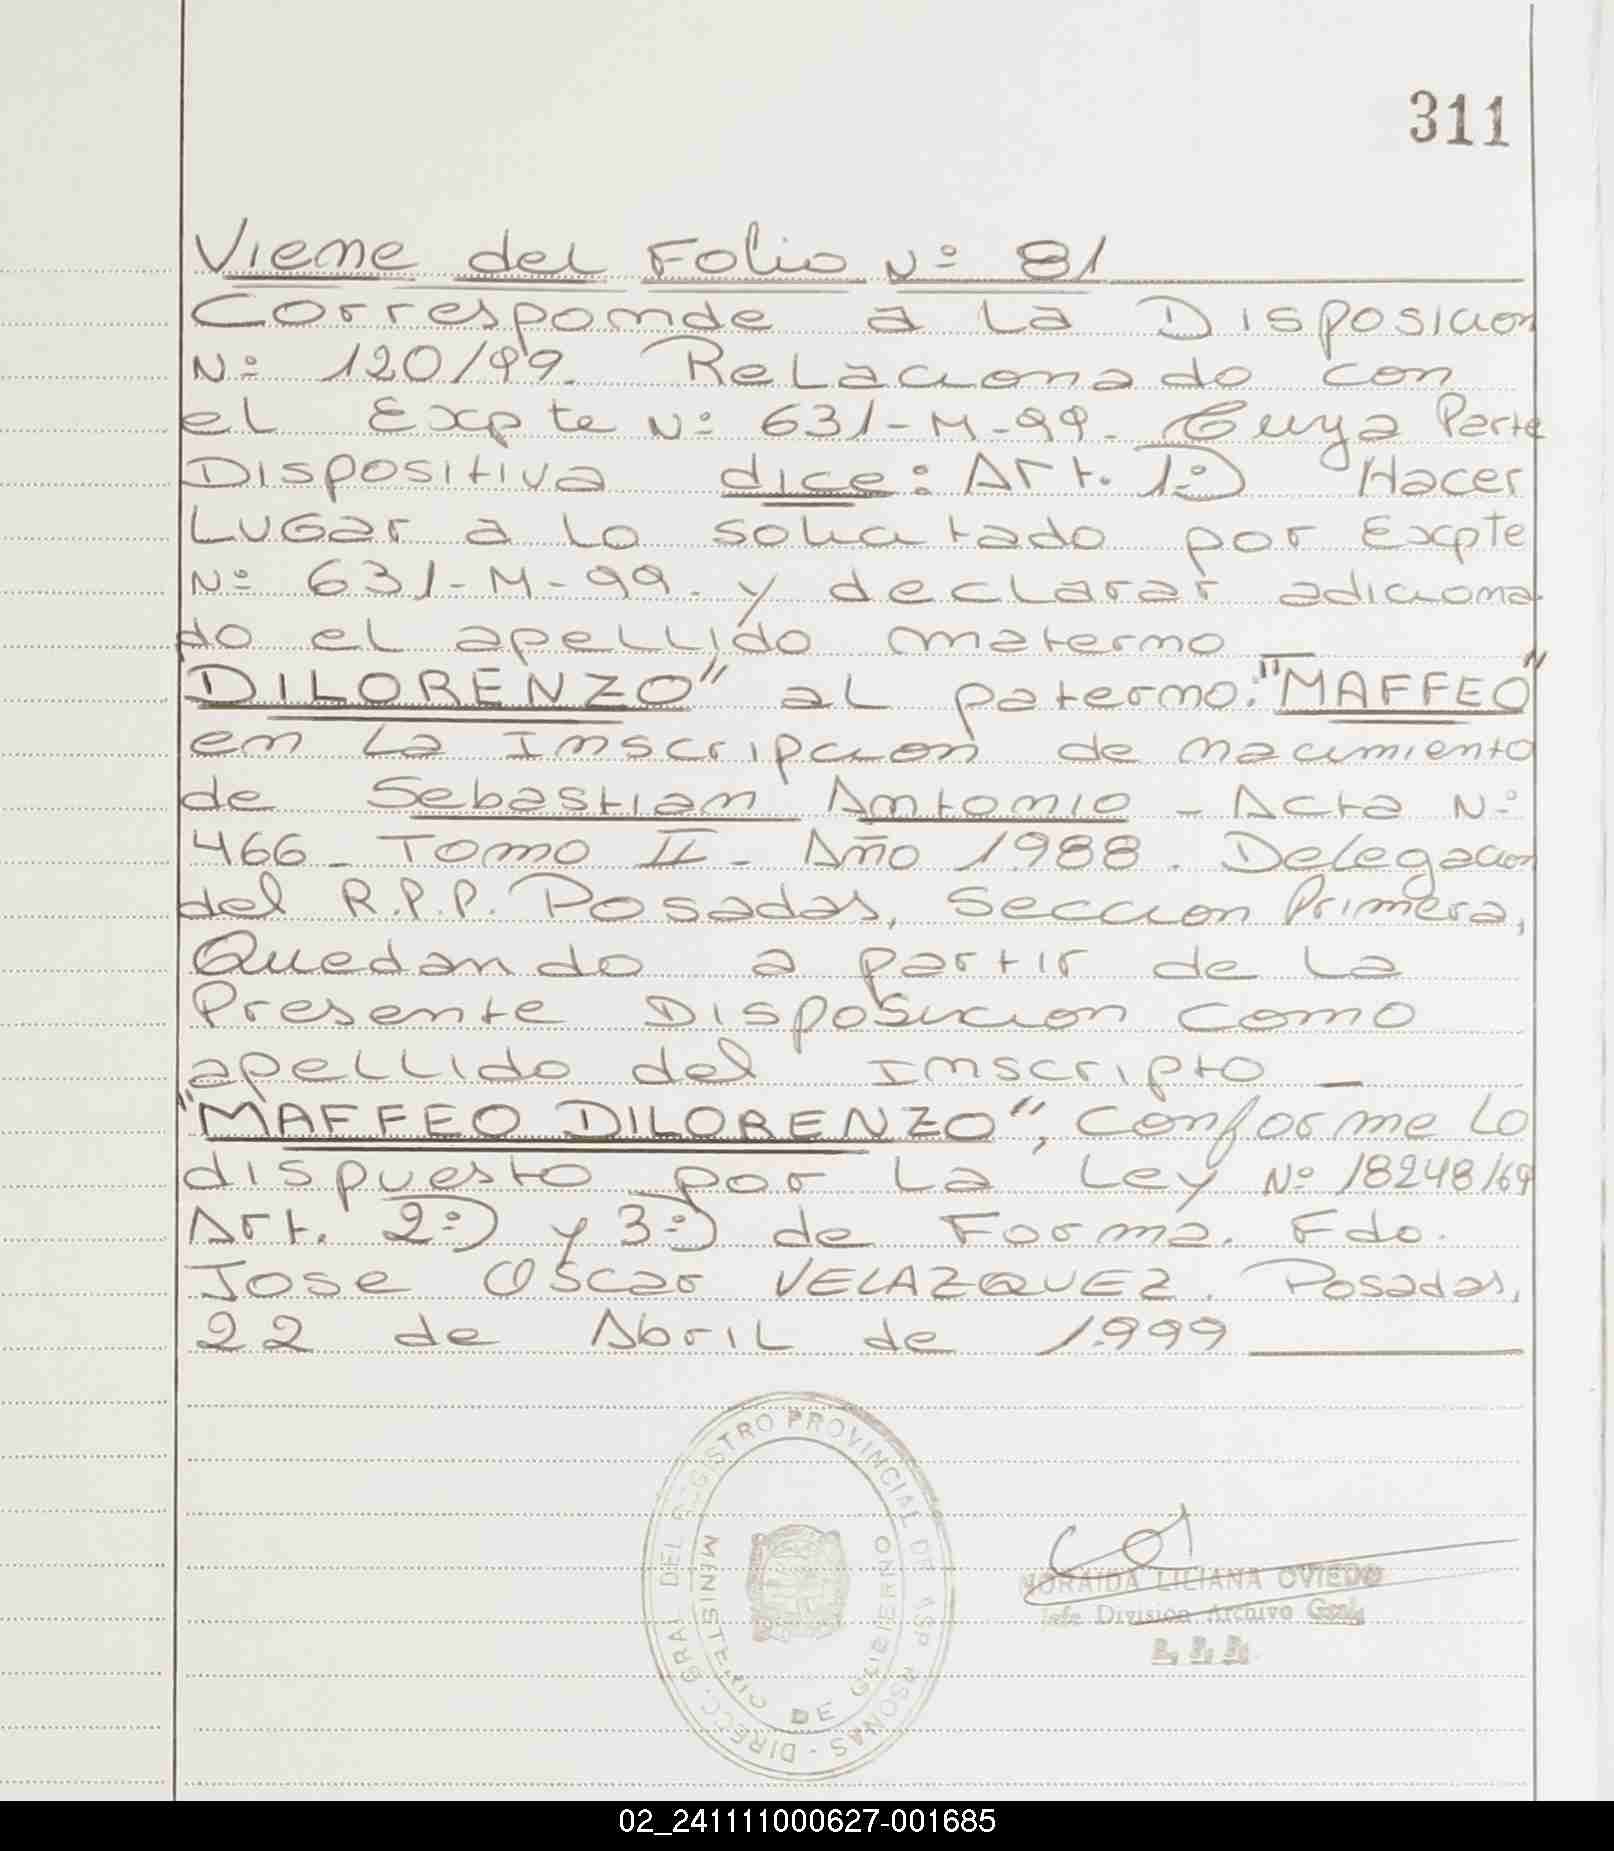 311
Viene del Folio Nº 81
Corresponde a la Disposicion
Nº 120/99. Relacionado con
el Expte Nº 631-M-99. Cuya Parte
Dispositiva dice: Art. 1º) Hacer
Lugar a lo solicitado por Expte
Nº 631-M-99. y declarar adiciona-
do el apellido materno
DILORENZO" al paterno: "MAFFEO"
en la Inscripcion de nacimiento
de Sebastian Antonio - Acta Nº
466 - Tomo II - Año 1988. Delegacion
del R.P.P. Posadas, Seccion Primera,
Quedando a partir de la
Presente Disposicion como
apellido del Inscripto -
"MAFFEO DILORENZO", Conforme lo
dispuesto por la Ley Nº 18248/69
Art. 2º) y 3º) de Forma. Fdo.
Jose Oscar VELAZQUEZ. Posadas,
22 de Abril de 1.999
DIRECC. GRAL DEL REGISTRO PROVINCIAL DE LAS PERSONAS
MINISTERIO DE GOBIERNO
NORAIDA LILIANA OVIEDO
Jefe Division Archivo Gral.
R. P. P.
02_241111000627-001685